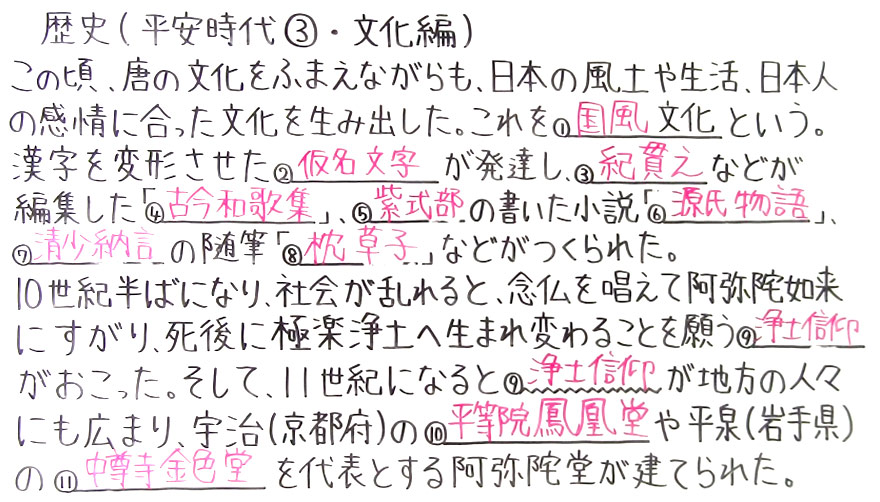 歴史(平安時代③・文化編)
この頃、唐の文化をふまえながらも、日本の風土や生活、日本人
の感情に合った文化を生み出した。これを①国風文化という。
漢字を変形させた②仮名文字が発達し、③紀貫之などが
編集した「④古今和歌集」、⑤紫式部の書いた小説「⑥源氏物語」、
⑦清少納言の随筆「⑧枕草子」などがつくられた。
10世紀半ばになり、社会が乱れると、念仏を唱えて阿弥陀如来
にすがり、死後に極楽浄土へ生まれ変わることを願う⑨浄土信仰
がおこった。そして、11世紀になると⑨浄土信仰が地方の人々
にも広まり、宇治(京都府)の⑩平等院鳳凰堂や平泉(岩手県)
の⑪中尊寺金色堂を代表とする阿弥陀堂が建てられた。